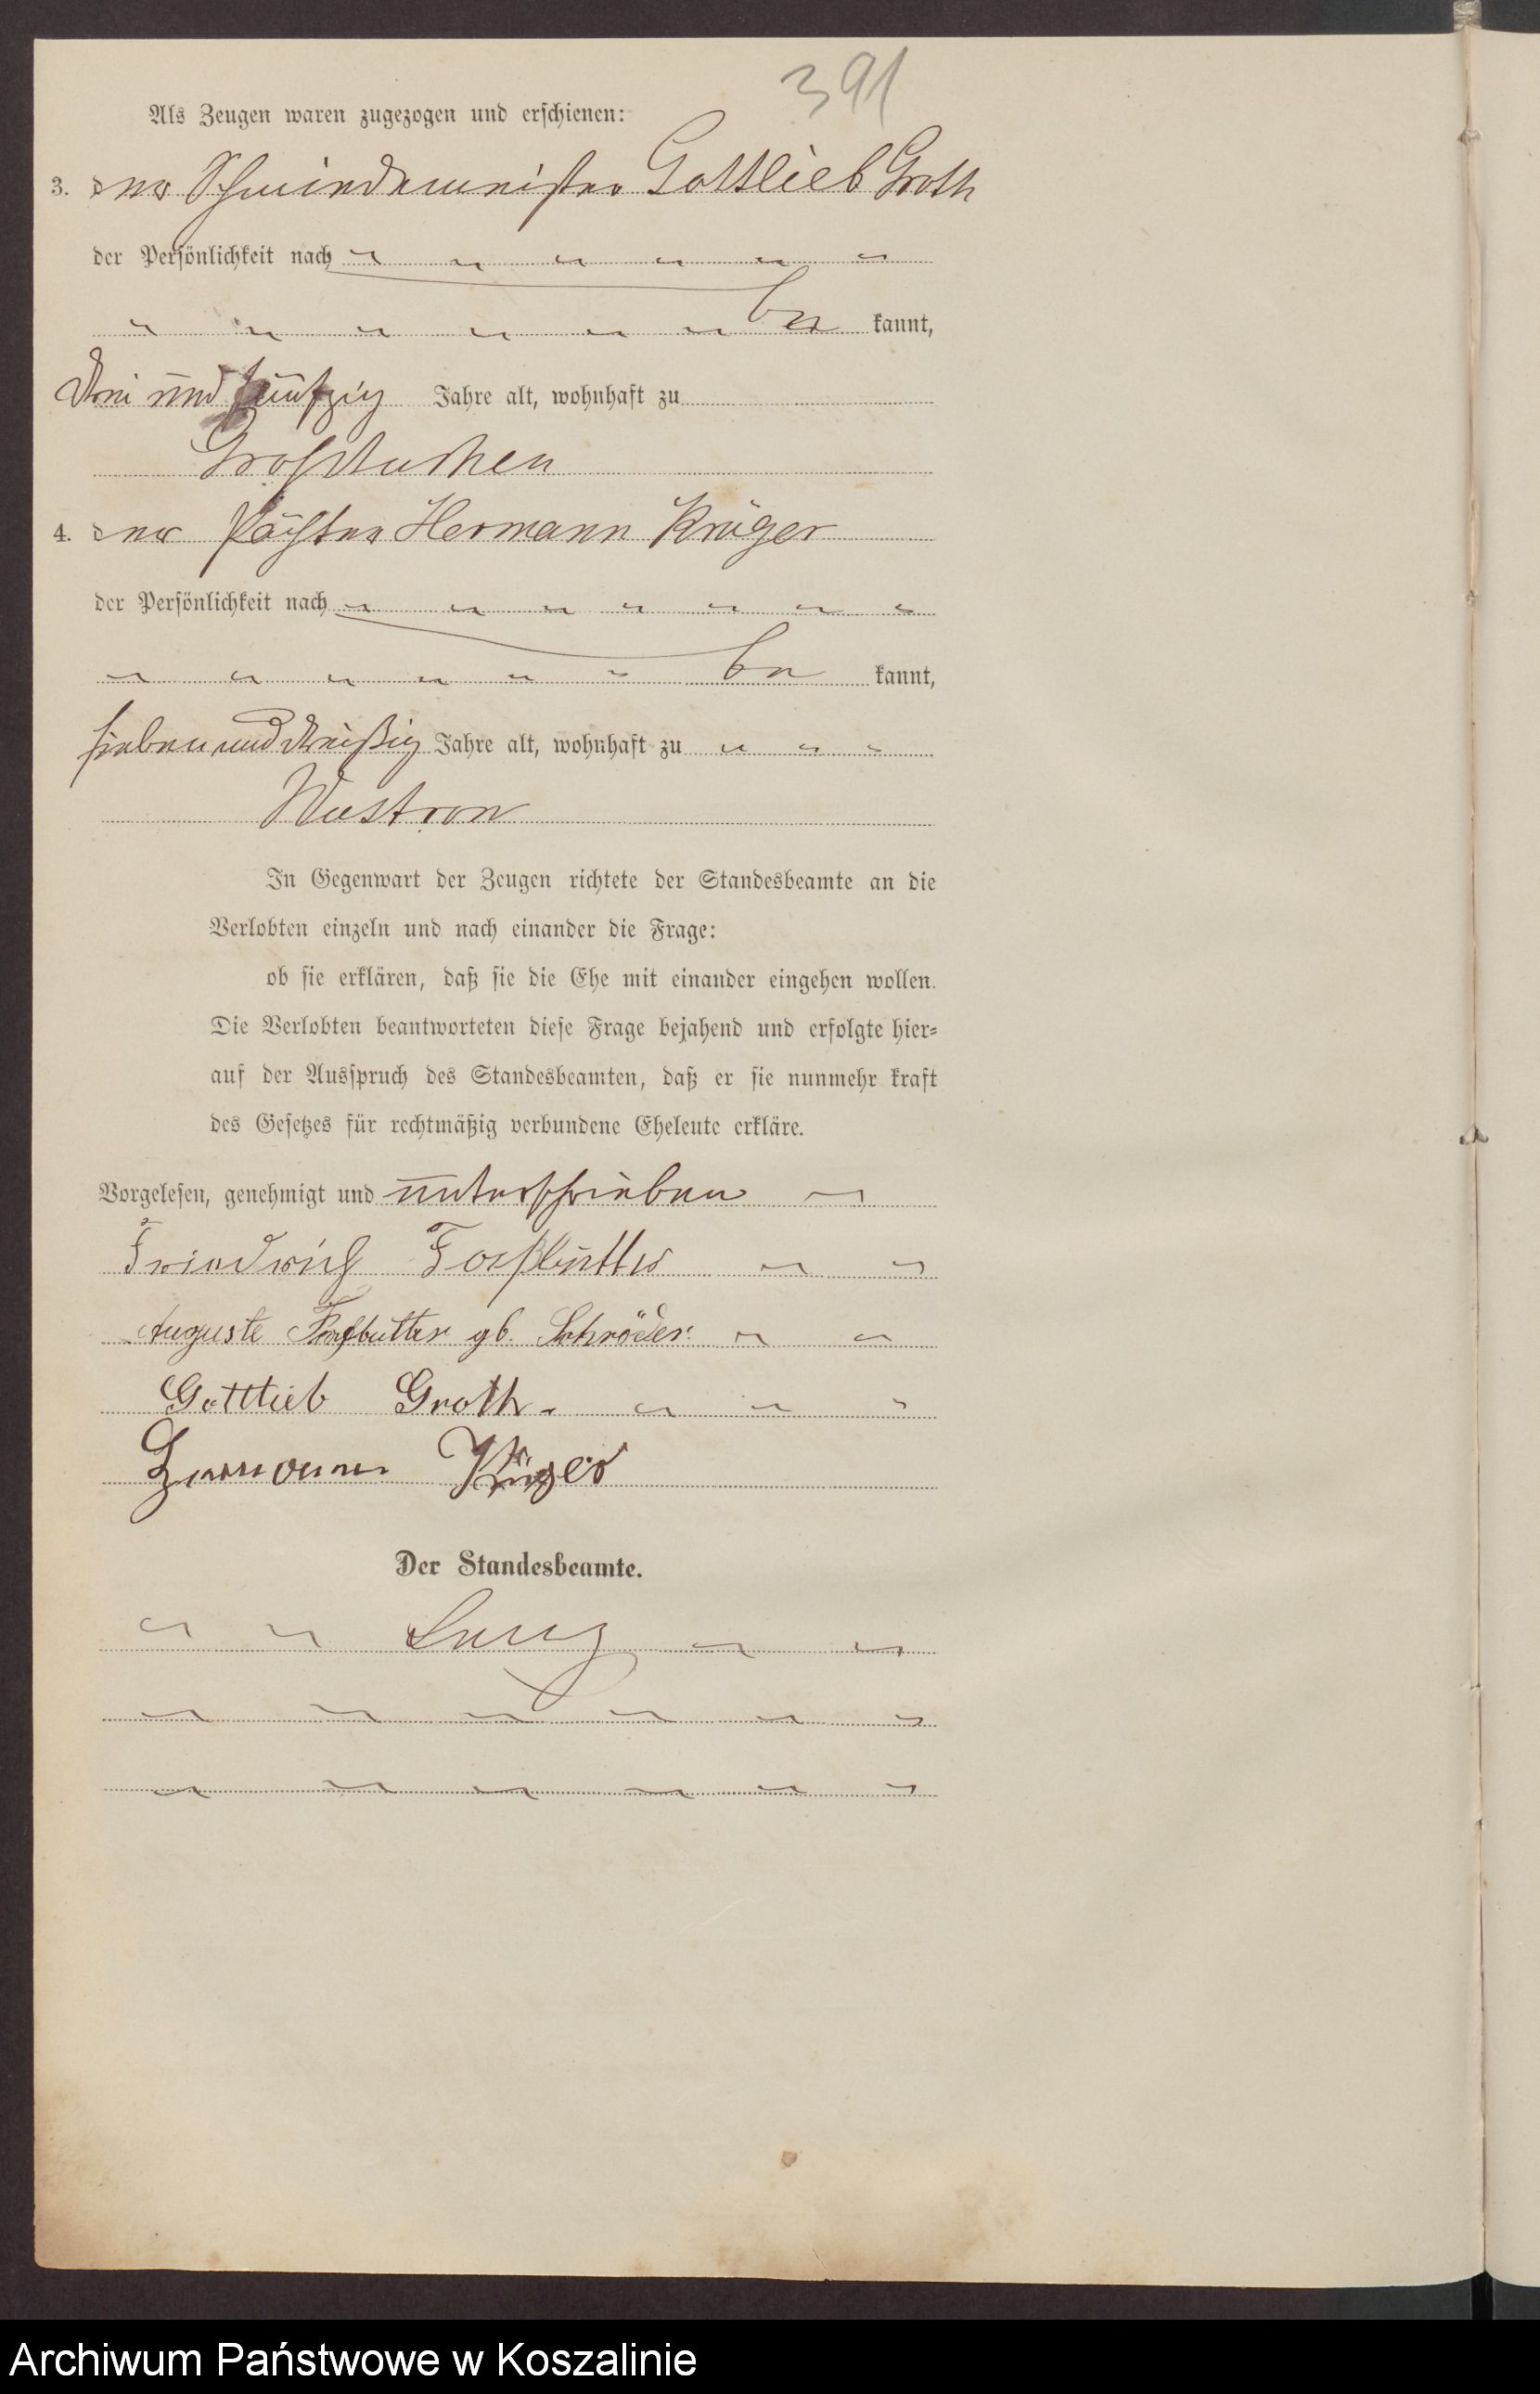 391
Als Zeugen waren zugezogen und erschienen:
3. der Schmiedemeister Gottlieb Groth
der Persönlichkeit nach
be kannt,
drei und fünfzig Jahre alt, wohnhaft zu
Großtuchen
4. der Pächter Hermann Krüger
der Persönlichkeit nach
be kannt,
sieben und dreißig Jahre alt, wohnhaft zu
In Gegenwart der Zeugen richtete der Standesbeamte an die
Verlobten einzeln und nach einander die Frage:
ob sie erklären, daß sie die Ehe mit einander eingehen wollen.
Die Verlobten beantworteten diese Frage bejahend und erfolgte hier-
auf der Ausspruch des Standesbeamten, daß er sie nunmehr kraft
des Gesetzes für rechtmäßig verbundene Eheleute erkläre.
Vorgelesen, genehmigt und unterschrieben
Friedrich
Auguste gb. Schröder.
Gottlieb Groth.
Hermann Krüger
Der Standesbeamte.
Archiwum Państwowe w Koszalinie